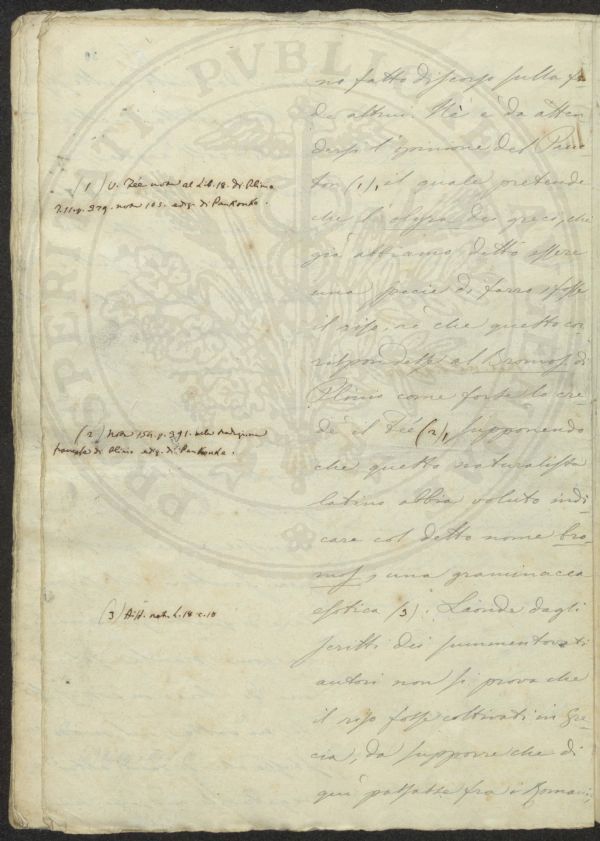 no fatto discorso sulla fe
de altrui. Nè è da atten
dersi l'opinione del Pauc
ton (1), il quale pretende
che l'olyra dei greci, chi
già abbiamo detto essere
una specie di farro, fosse
il riso, nè che questo cor
rispondesse al Bromos di
Plinio come forse lo cre
dè il Fée (2), supponendo
che questo naturalista
latino abbia voluto indi
care col detto nome bro
mos, una graminacea
esotica (3). Laonde dagli
scritti dei summentovati
autori non si prova che
il riso fosse coltivati in Gre
cia, da supporre che di
qui passasse fra i Romani,
(1) V. Fée nota al Lib. 18. di Plinio
T. 11. p. 379. nota 105. ediz. di Pankouke.
(2) Nota 154. p. 391. nella traduzione
francese di Plinio ediz. di Pankouke.
(3) Hist. nat. L. 18 c. 10
PROSPERITATI PVBLICAE